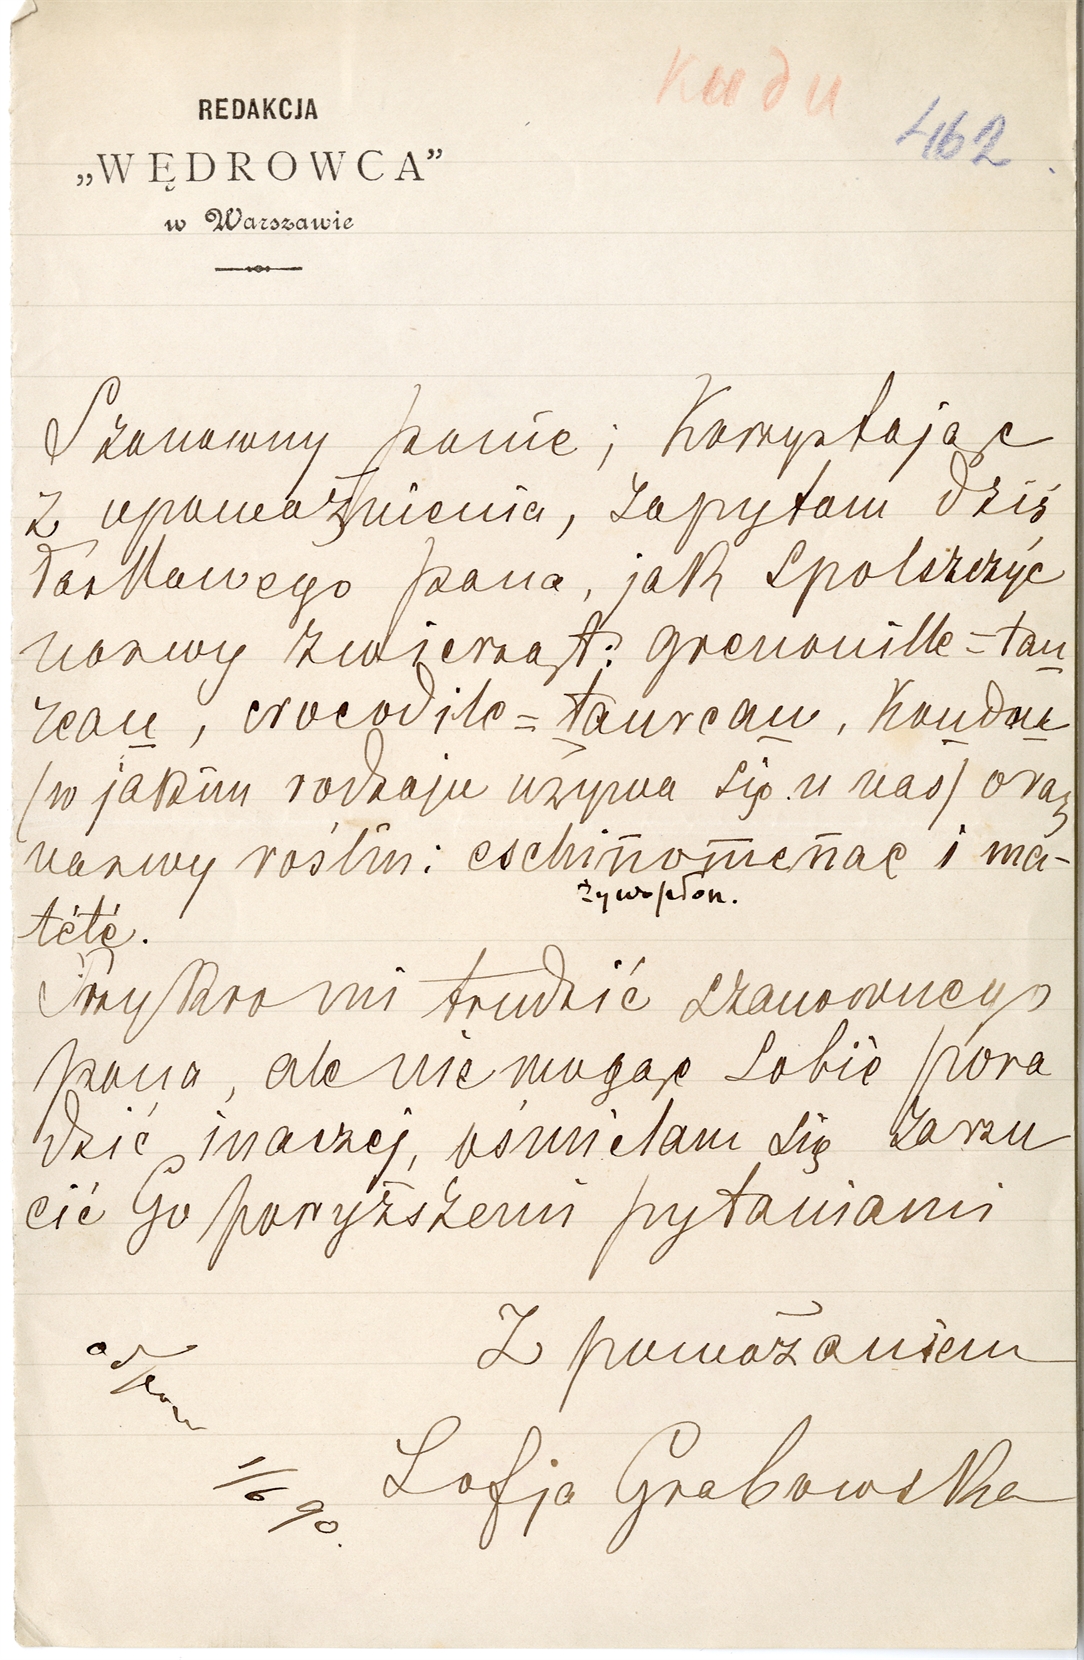 kudu
462
REDAKCJA
„WĘDROWCA”
w Warszawie
Szanowny panie; Korzystając
z upoważnienia, zapytam dziś
łaskawego pana, jak spolszczyć
nazwy zwierząt: grenouille=tau
reau, crocodile=taureau, Koudou
(w jakim rodzaju używa się u nas) oraz
nazwy roślin: eschinomenae i ma-
żywopłon.
tété.
Przykro mi trudzić szanownego
pana, ale nie mogąc sobie pora
dzić inaczej, ośmielam się zarzu
cić Go powyższemi pytaniami
Z poważaniem
odpow
Zofja Grabowska
1/6 90.